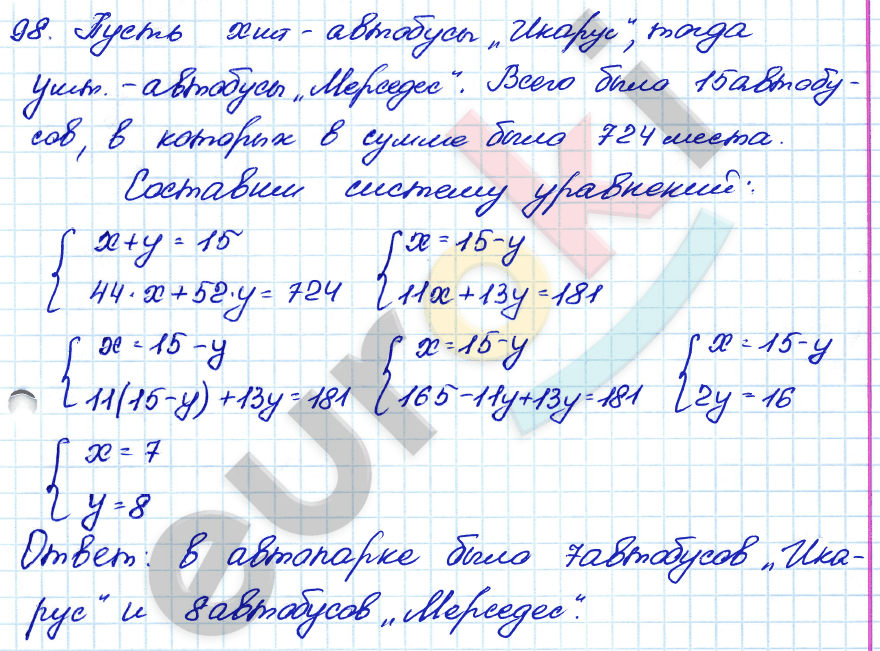 98. Пусть x шт - автобусы „Икарус", тогда
y шт. - автобусы „Мерседес". Всего было 15 автобу-
сов, в которых в сумме было 724 места.
Составим систему уравнений:
{ x+y = 15 { x = 15-y
44·x+52·y = 724 11x+13y = 181
{ x = 15-y { x = 15-y { x = 15-y
11(15-y)+13y = 181 165-11y+13y = 181 2y = 16
{ x = 7
y = 8
Ответ: в автопарке было 7 автобусов „Ика-
рус" и 8 автобусов „Мерседес".
euroki